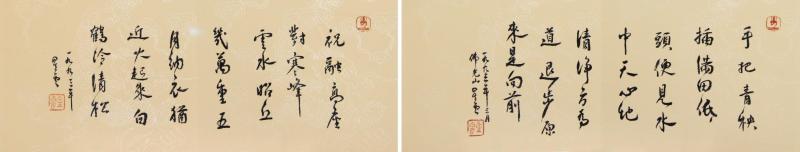 手把青秧
插滿田低
頭便見水
中天心地
清净方為
道退步原
來是向前
一九九三年三月
佛光山星雲
祝融高座
對寒峰
雲水昭丘
幾萬重五
月衲衣猶
近火起來白
鶴冷清松
一九九三年
星雲